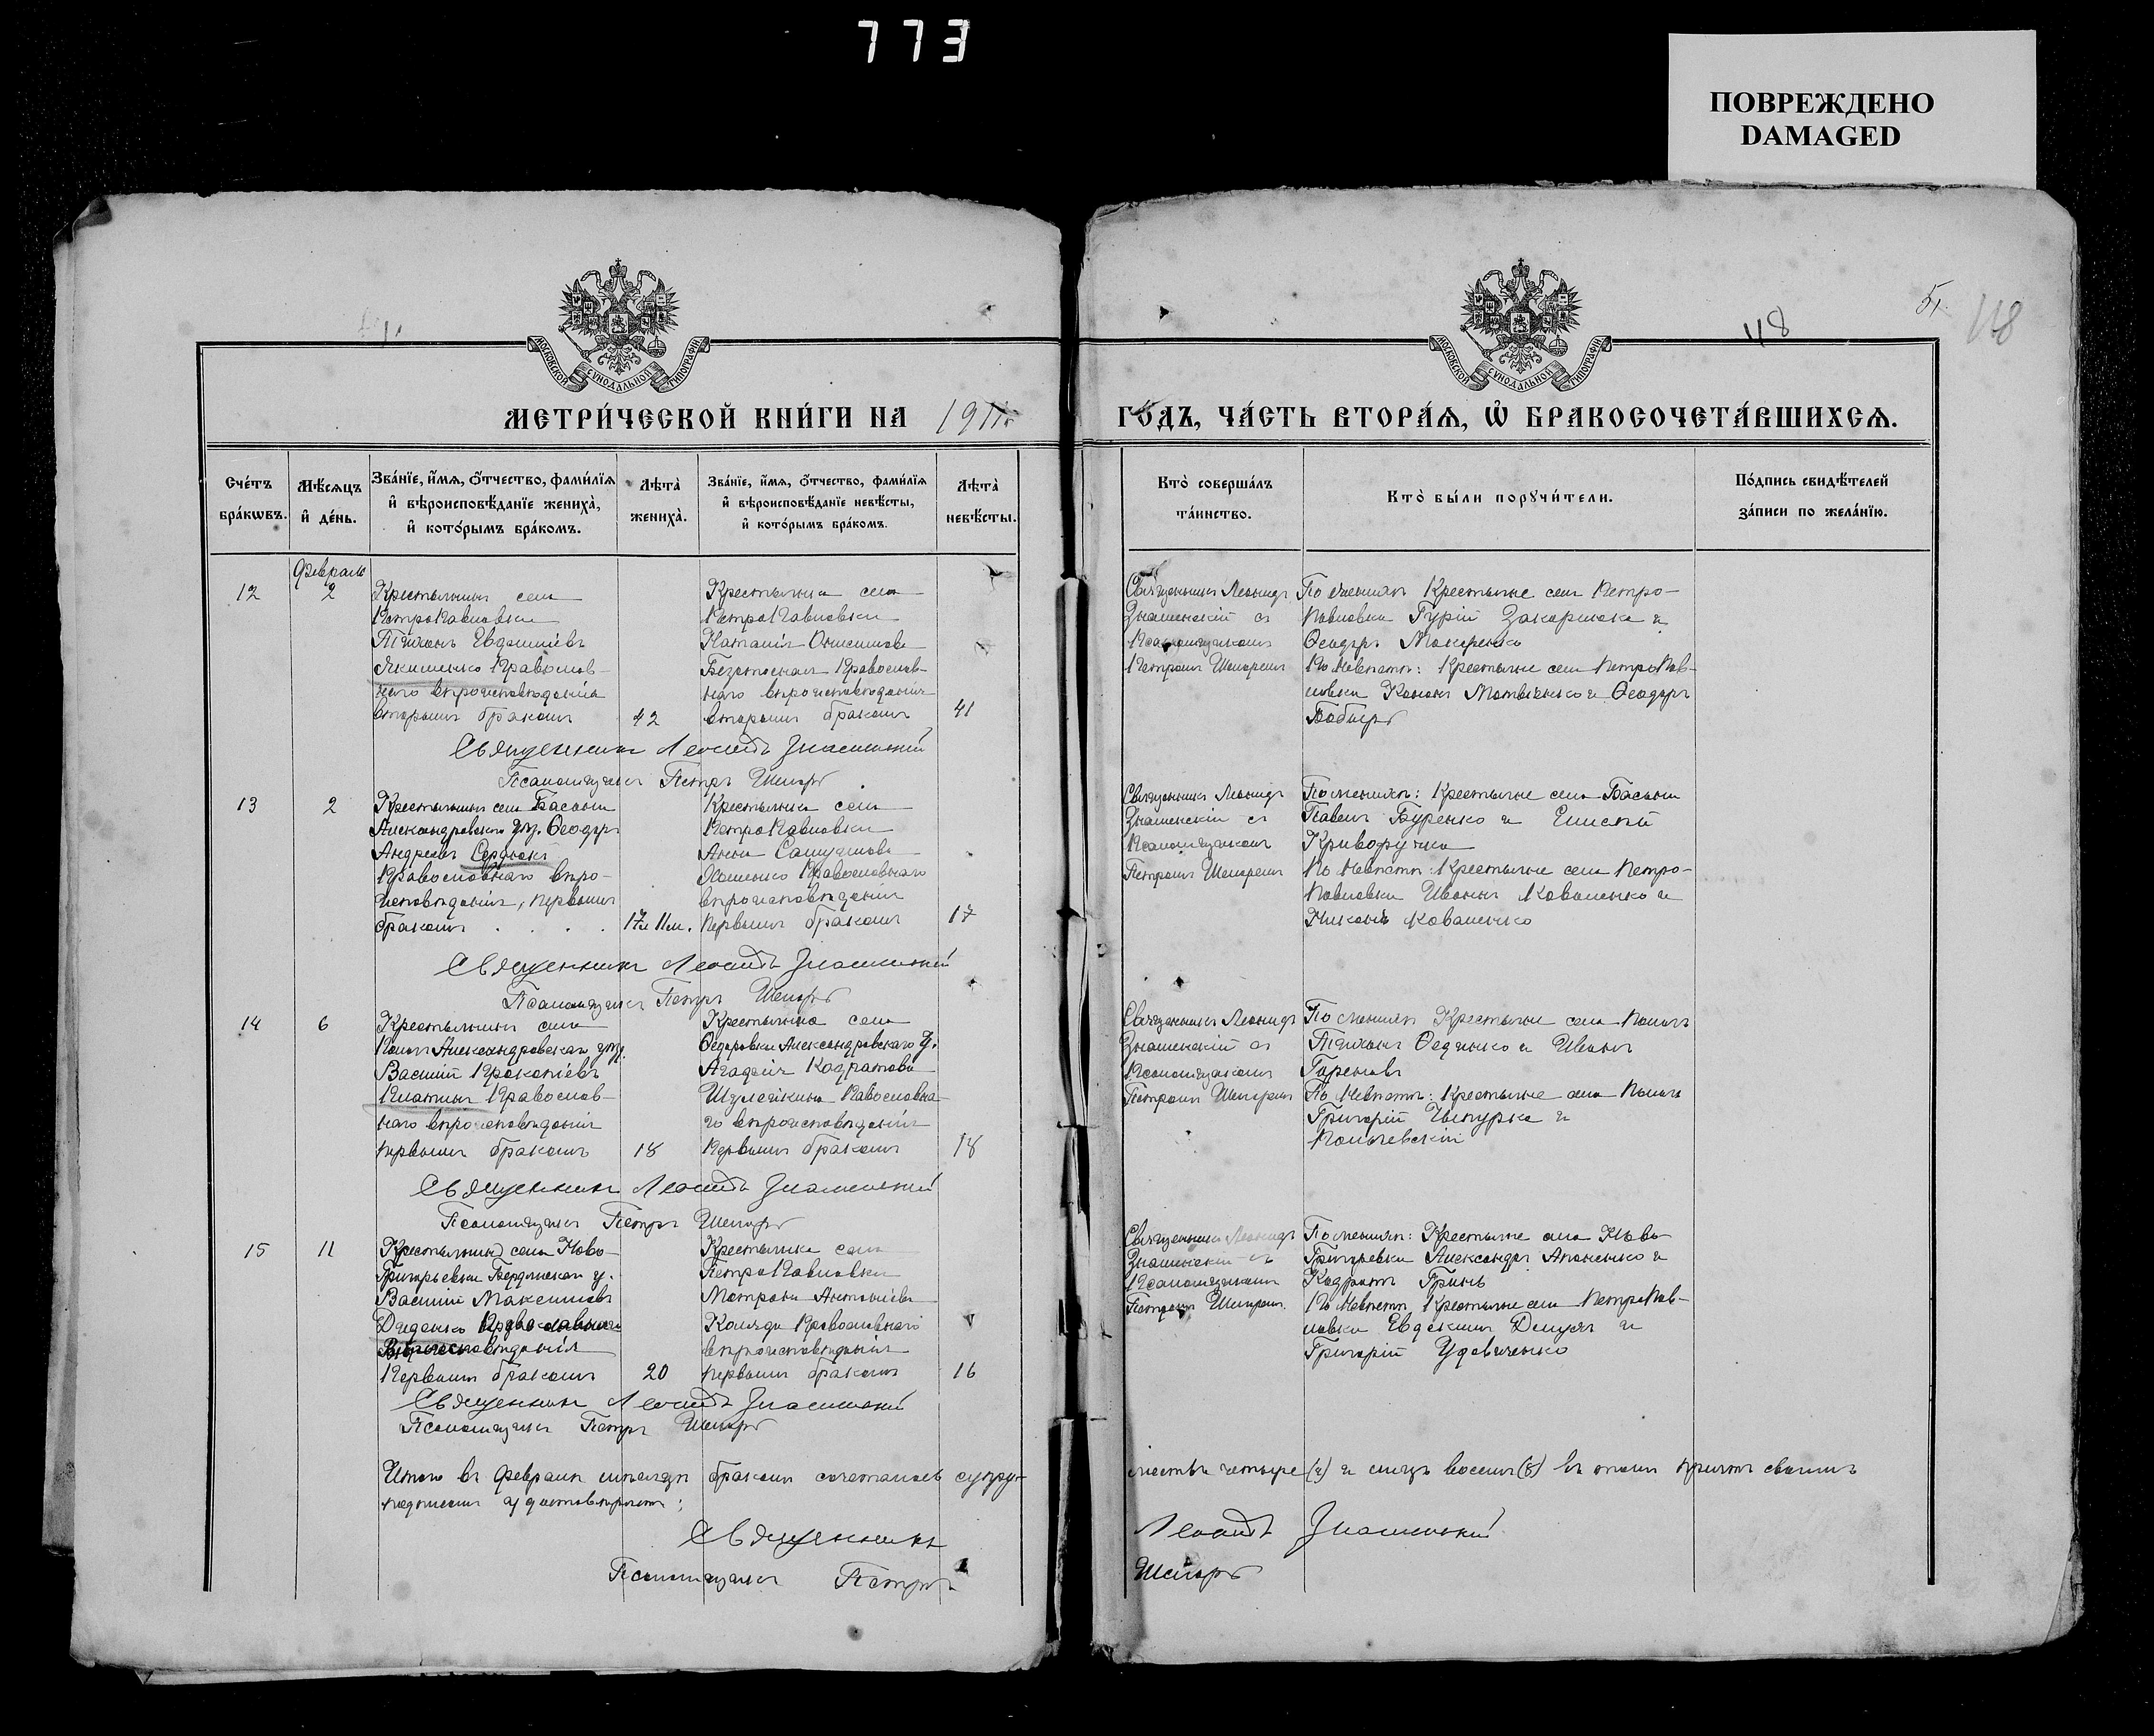 773
ПОВРЕЖДЕНО
DAMAGED
118
5
118
МОСКОВСКОЙ СѴНОДАЛЬНОЙ ТИПОГРАФІИ
МОСКОВСКОЙ СѴНОДАЛЬНОЙ ТИПОГРАФІИ
МЕТРИ́ЧЕСКОЙ КНИ́ГИ НА 1911г
ГО́ДЪ, ЧА́СТЬ ВТОРА́Ѧ, Ѽ БРАКОСОЧЕТА́ВШИХСѦ.
Сче́тъ бра́кѡвъ.
Мѣ́сѧцъ и҆ де́нь.
Зва́нїе, и҆́мѧ, ѻ҆́тчество, фами́лїѧ и҆ вѣроисповѣ́данїе жениха̀, и҆ кото́рымъ бра́комъ.
Лѣта̀ жениха̀.
Зва́нїе, и҆́мѧ, ѻ҆́тчество, фами́лїѧ и҆ вѣроисповѣ́данїе невѣ́сты, и҆ кото́рымъ бра́комъ.
Лѣта̀ невѣ́сты.
Кто̀ соверша́лъ та́инство.
Кто̀ бы́ли порꙋчи́тели.
По́дпись свидѣ́телей за́писи по жела́нїю.
Февраль
12
2
Крестьянинъ села
ПетроПавловки
Тихонъ Евфиміевъ
Якименко Православ-
наго вѣроисповѣданія
вторымъ бракомъ
42
Крестьянка села
ПетроПавловки
Наталія Онисимова
Православ-
наго вѣроисповѣданія
вторымъ бракомъ
41
Священникъ Леонидъ
Знаменскій съ
Псаломщикомъ
Петромъ
По женихѣ Крестьяне села Петро-
Павловки Гурій и
Ѳеодоръ Макаренко
По Невѣстѣ: Крестьяне села ПетроПав-
ловки Кононъ Матвіенко и Ѳеодоръ
Священникъ Леонидъ Знаменскій
Псаломщикъ Петръ
13
2
Крестьянинъ села Басани
Александровскаго уѣз. Ѳеодоръ
Андреевъ Сердюкъ
Православнаго вѣро-
исповѣданія, первымъ
бракомъ
17л 11м.
Крестьянка села
ПетроПавловки
Анна Самуилова
Православнаго
вѣроисповѣданія
первымъ бракомъ
17
Священникъ Леонидъ
Знаменскій съ
Псаломщикомъ
Петромъ
По женихѣ: Крестьяне села Басани
Павелъ Буренко и Елисей
Криворучка
По Невѣстѣ: Крестьяне села Петро-
Павловки Иванъ Коваленко и
Никонъ Коваленко
Священникъ Леонидъ Знаменскій
Псаломщикъ Петръ
14
6
Крестьянинъ села
Пологъ Александровскаго уѣз.
Василій Прокопіевъ
Православ-
наго вѣроисповѣданія
первымъ бракомъ
18
Крестьянка села
Ѳедоровки Александровскаго у.
Агафія Кодратова
Шулейкина Павославна-
го вѣроисповѣданія
первымъ бракомъ
18
Священникъ Леонидъ
Знаменскій съ
Псаломщикомъ
Петромъ
По женихѣ Крестьяне села Пологъ
Тихонъ и Иванъ
По Невѣстѣ: Крестьяне села Пологъ
Григорій и
Священникъ Леонидъ Знаменскій
Псаломщикъ Петръ
15
11
Крестьянинъ села Ново-
Григорьевки Бердянскаго у.
Василій Максимовъ
Православнаго
вѣроисповѣданія
Первымъ бракомъ
20
Крестьянка села
ПетроПавловки
Матрона Антоніева
Коляда Православнаго
вѣроисповѣданія
первымъ бракомъ
16
Священникъ Леонидъ
Знаменскій съ
Псаломщикомъ
Петромъ
По женихѣ: Крестьяне села Ново-
Григорьевки Александръ Апаненко и
Кодратъ Гринь
По Невѣстѣ Крестьяне села ПетроПав-
ловки Евдокимъ и
Григорій Удовиченко
Священникъ Леонидъ Знаменскій
Псаломщикъ Петръ
Итого въ Февралѣ мѣсяцѣ бракомъ сочеталось супру-
жествъ четыре (4) и лицъ восемь (8) въ томъ причтъ своимъ
подписомъ удостовѣряетъ:
Священникъ Леонидъ Знаменскій
Псаломщикъ Петръ